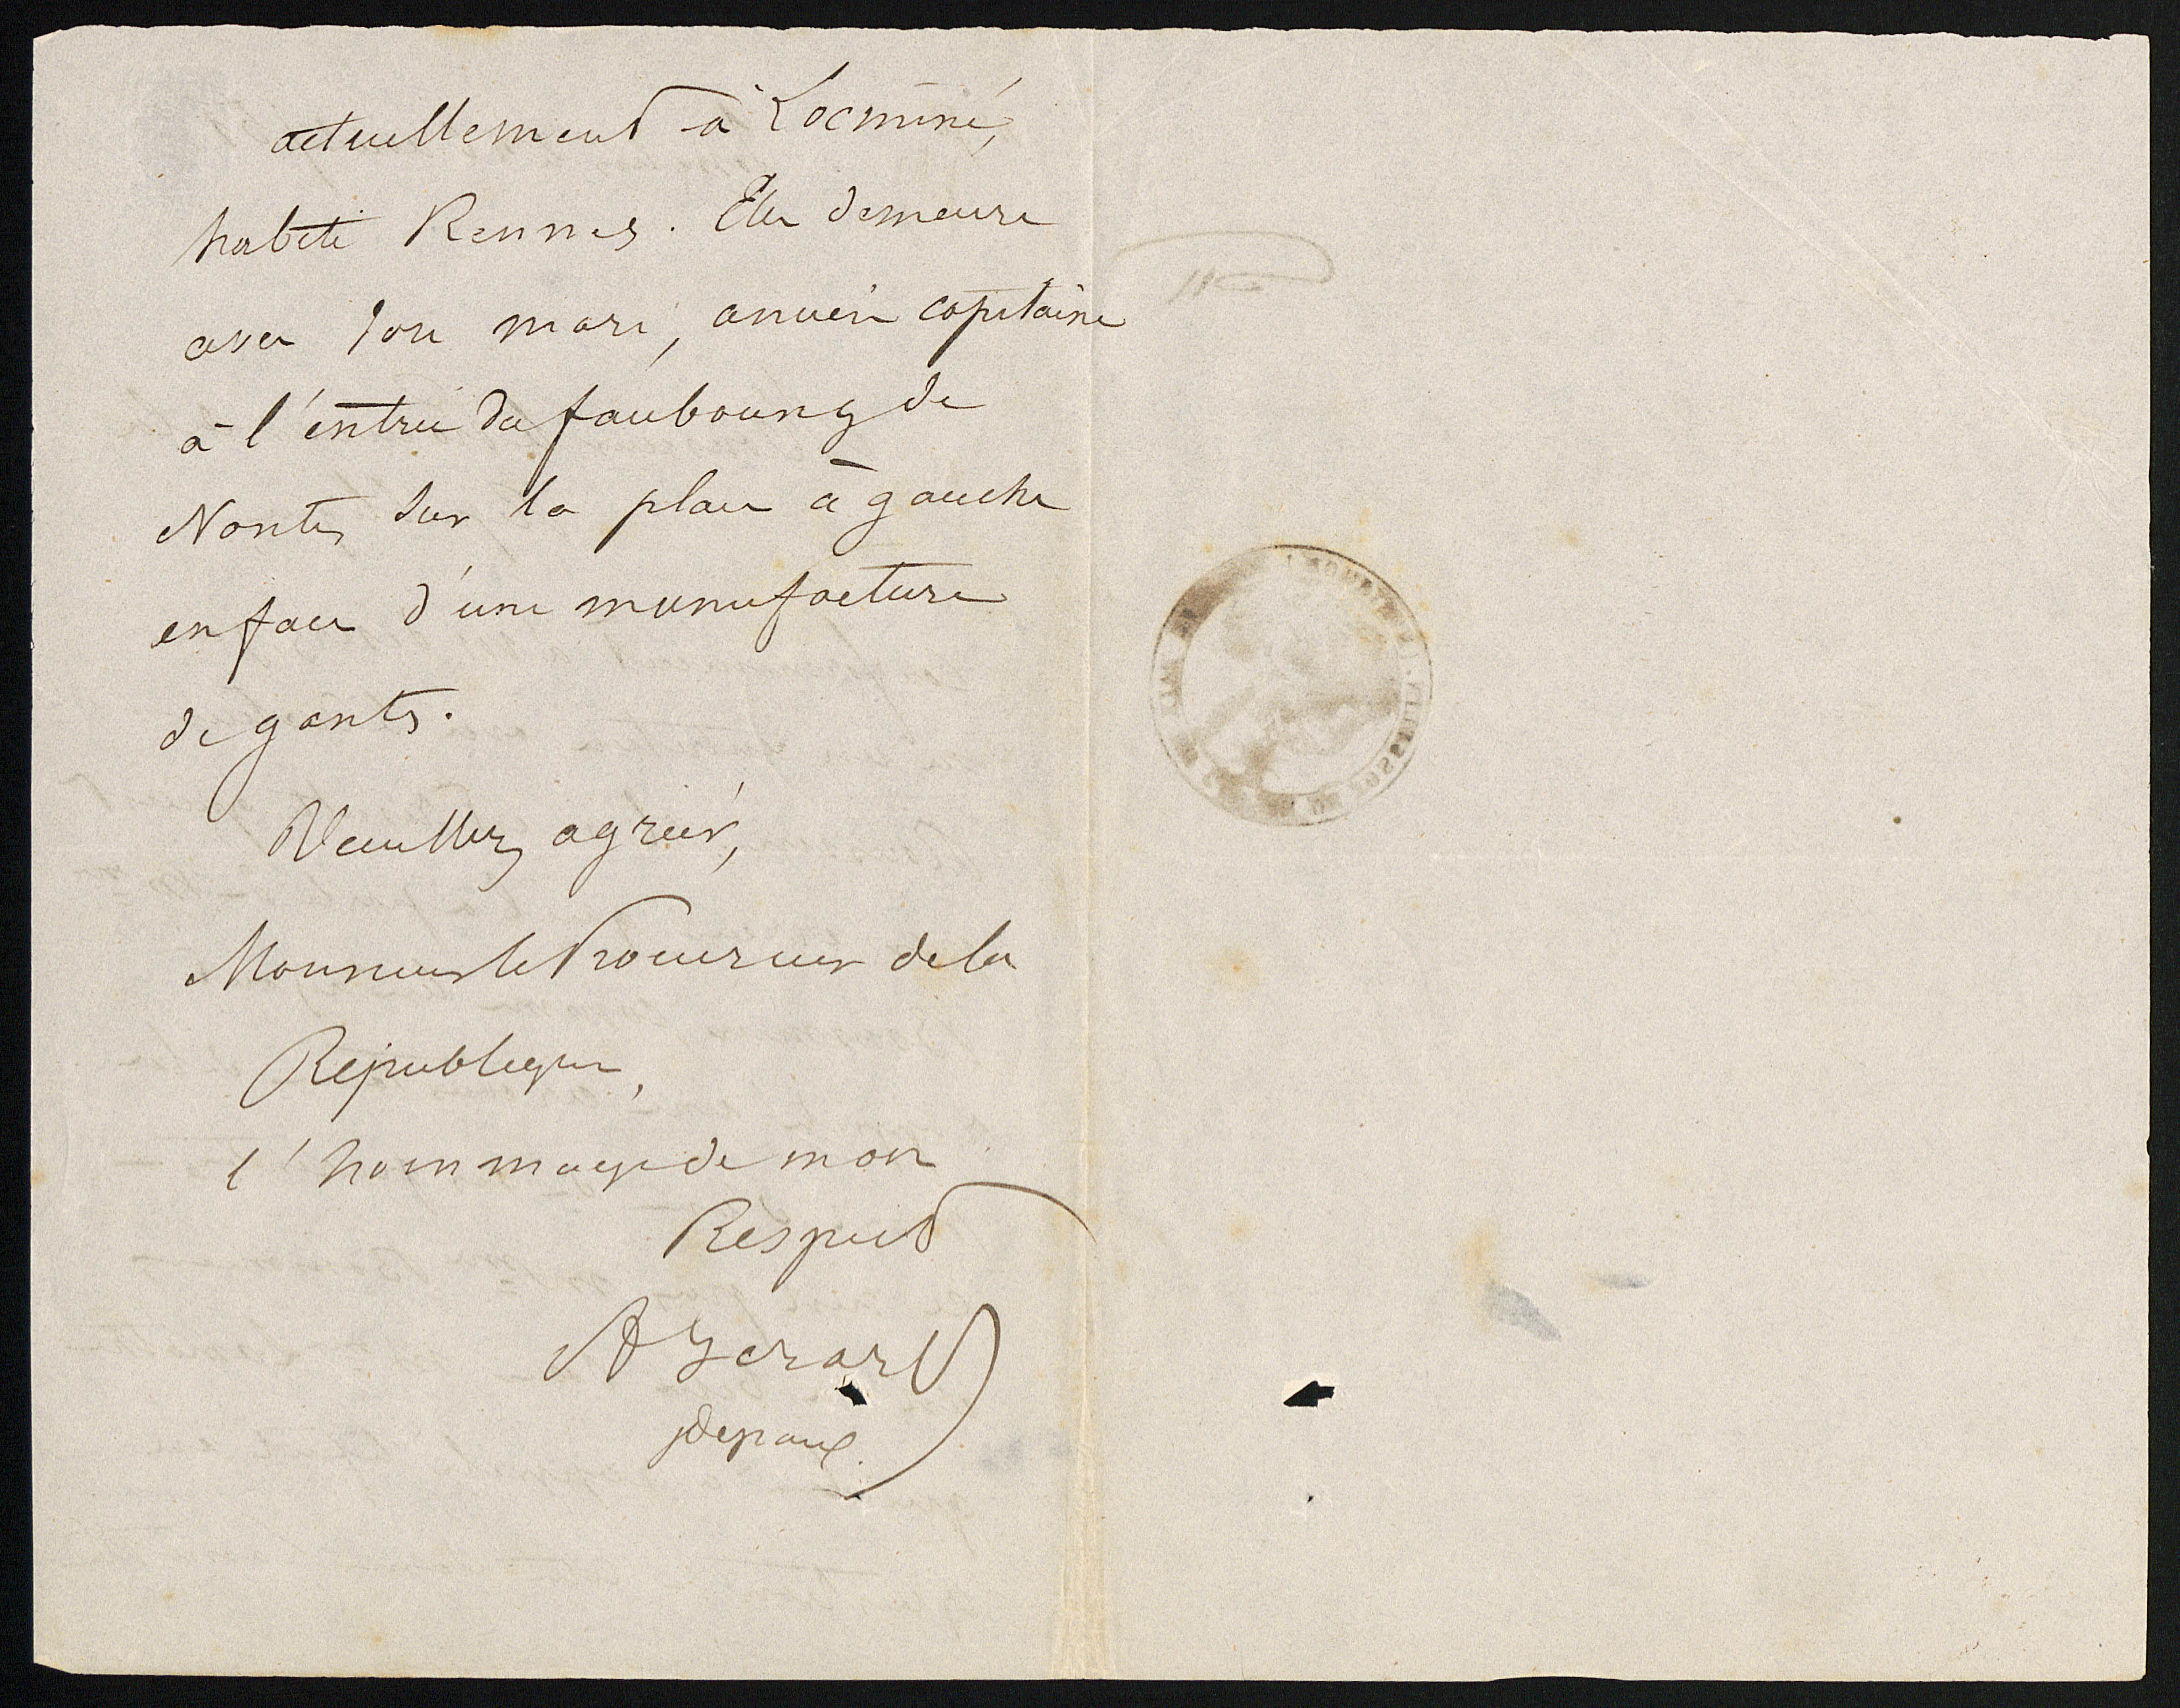 actuellement à Locminé,
habite Rennes. Elle demeure
avec son mari, ancien capitaine
à l'entrée du faubourg de
Nantes sur la place à gauche
en face d'une manufacture
de gants.
Veuillez agréer,
Monsieur le Procureur de la
République,
l'hommage de mon
Respect
A Gérard